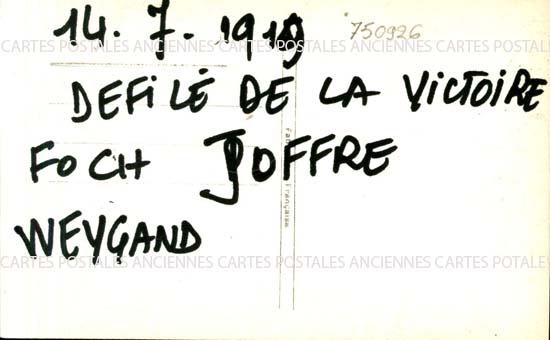 14. 7. 1919 750926
CARTES POSTALES ANCIENNES CARTES POSTALES ANCIENNES CARTES POSTALES
DEFILÉ DE LA VICTOIRE
FOCH JOFFRE
Française
WEYGAND
CARTES POSTALES ANCIENNES CARTES POSTALES ANCIENNES CARTES POTALE